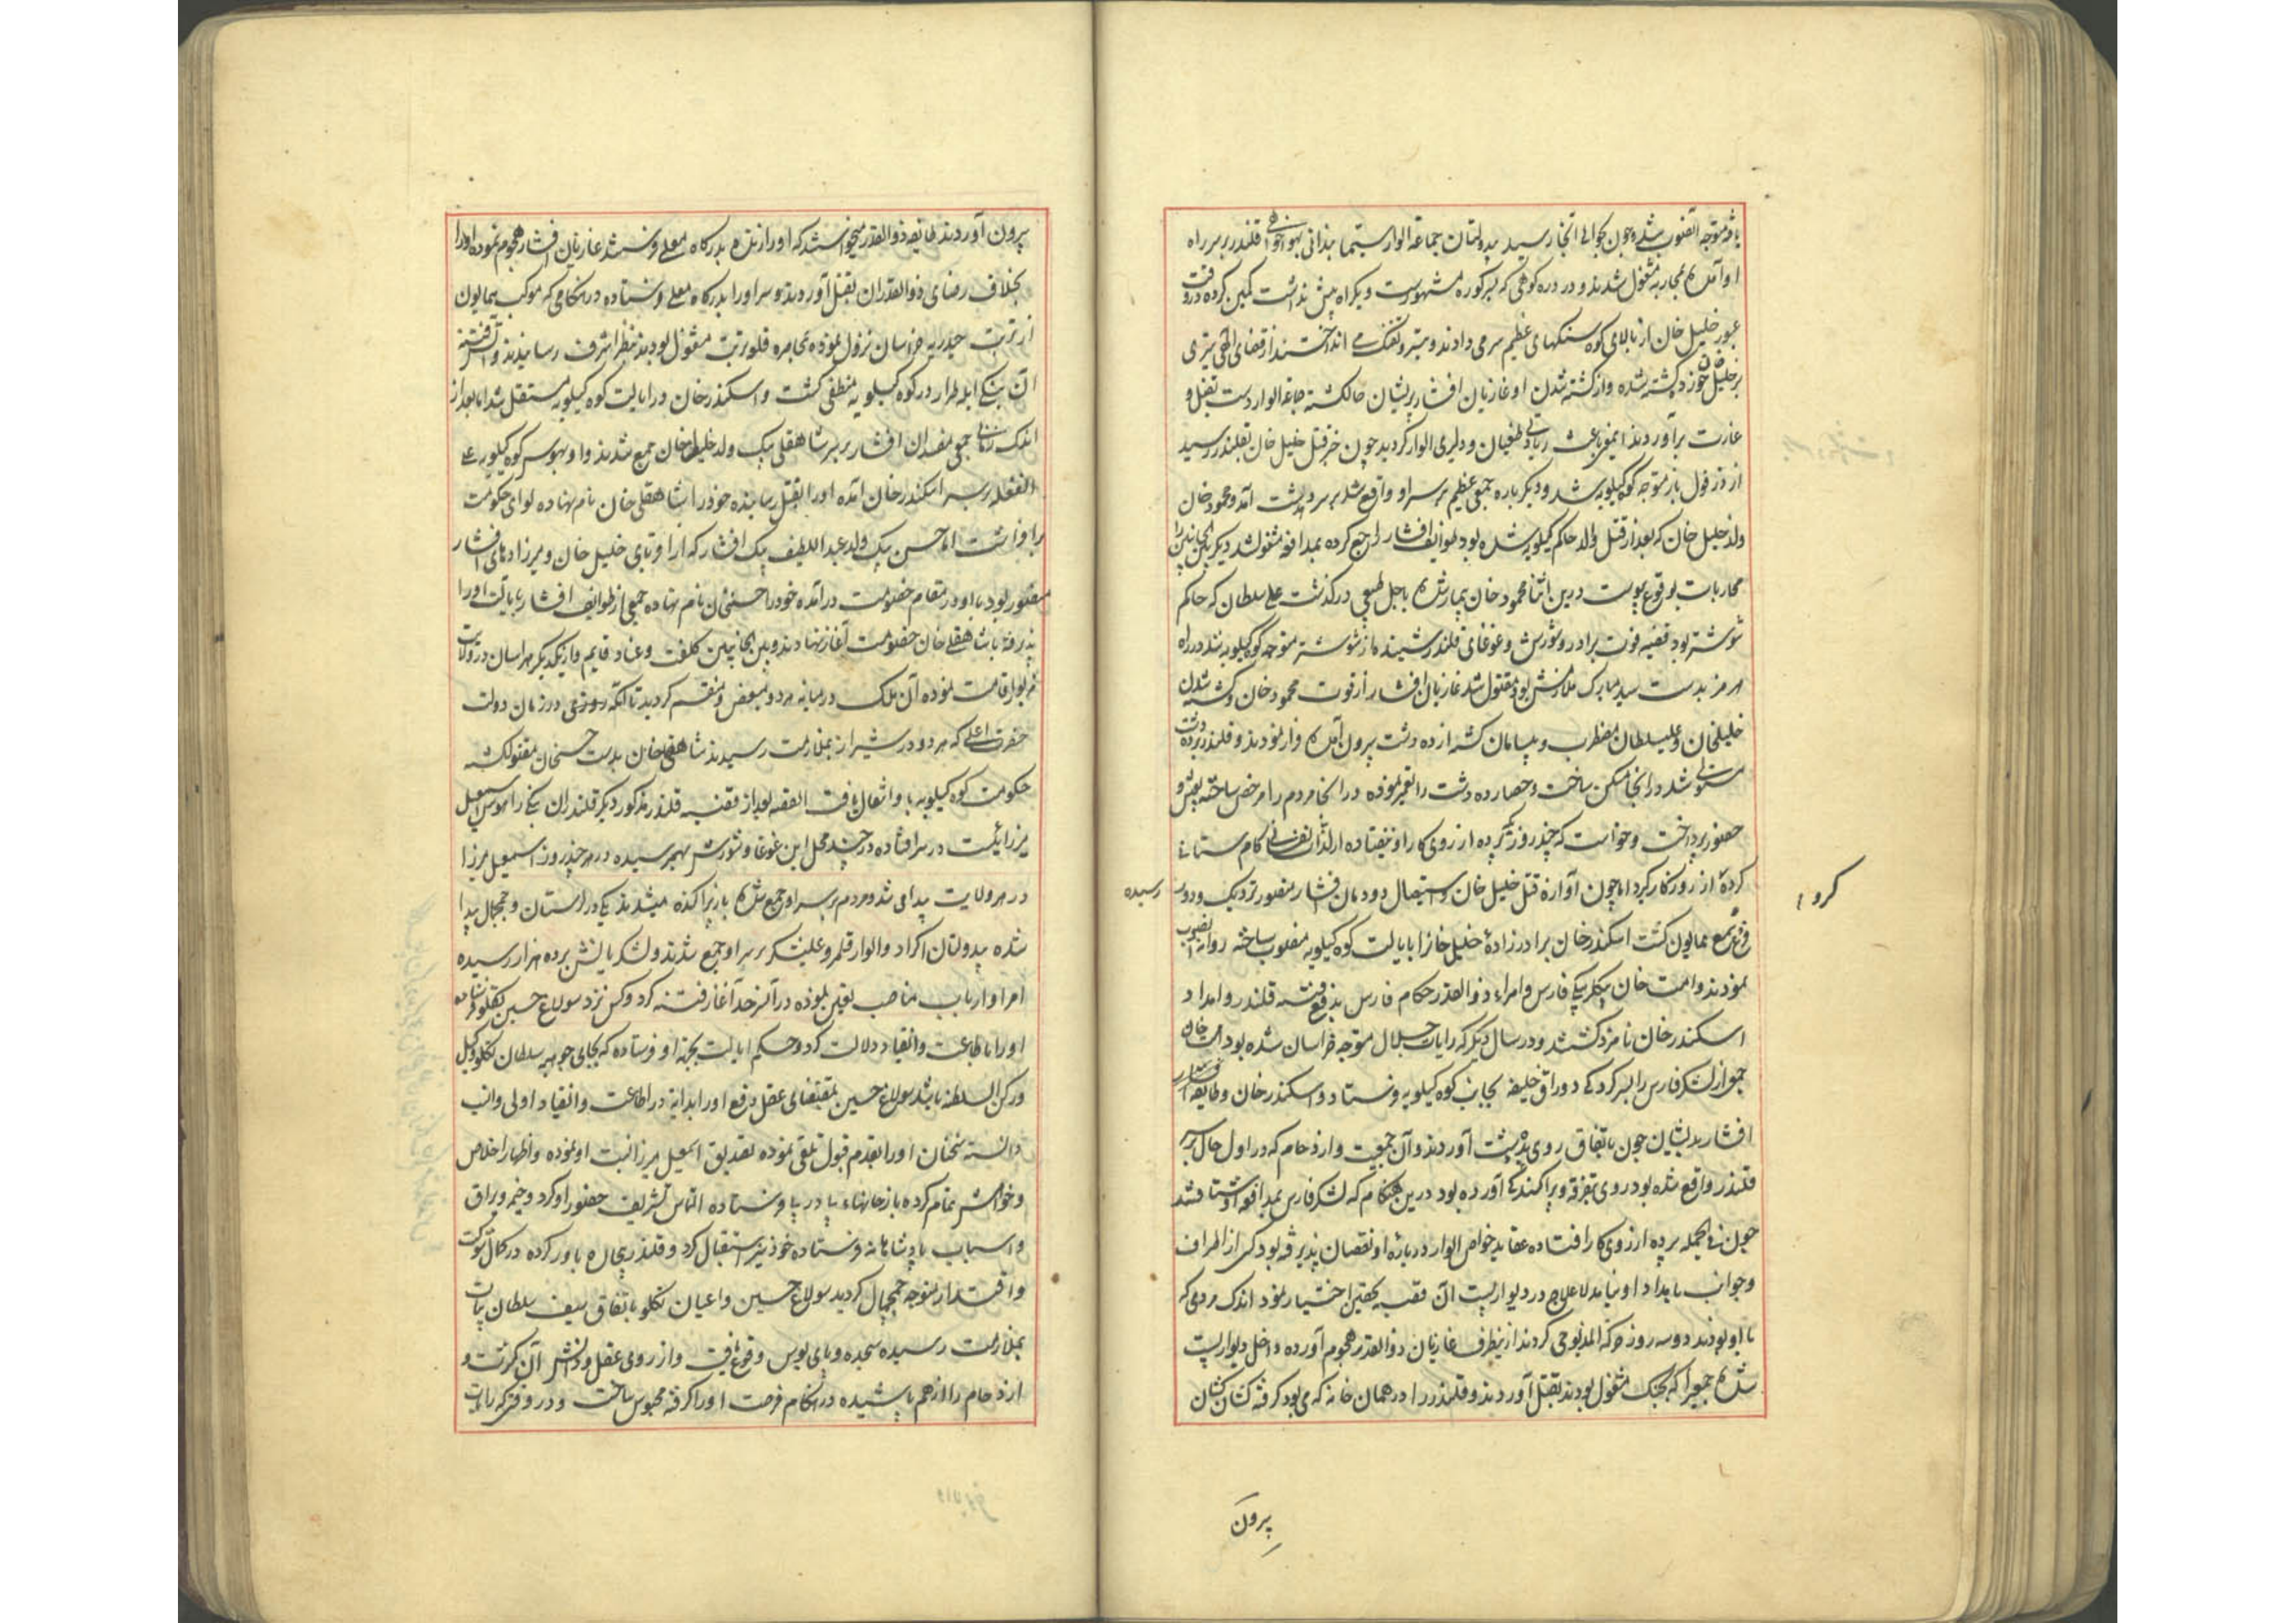 یافته متوجه آنصوب شد و چون بحوالی آنجا رسید بیدولتان جماعه الوار سیما بندانی بهواخواهی قلندر بر سر راه
او آمده بمحاربه مشغول شدند و در دره کوهی که بکوره مشهورست و یکراه بیش نداشت کمین کرده در وقت
عبور خلیل خان از بالای کوه سنکهای عظیم سر می دادند و تیر و تفنک می انداختند از قضای الهی تیری
بر خلیل خان خورد کشته شد و از کشته شدن او غازیان افشار پریشان حال کشته جماعه الوار دست بقتل و
غارت برآوردند اینمعنی باعث زیادتی طغیان و دلیری الوار کردید چون خبر قتل خلیل خان بقلندر رسید
از دزفول باز متوجه کوه کیلویه شد و دیکر باره جمعی عظیم بر سر او واقع شد بر سر دهدشت آمد و محمود خان
ولد خلیل خان که بعد از قتل والد حاکم کیلویه شده بود طوایف افشار را جمع کرده بمدافعه مشغول شد دیکر بار بین الجانبین
محاربات بوقوع پیوست درین اثنا محمود خان بیمار شده باجل طبیعی درکذشت علی سلطان که حاکم
شوشتر بود قضیه فوت برادر و شورش و غوغای قلندر شنیده از شوشتر متوجه کوه کیلویه شد در راه
هرمز بدست سید مبارک ملازمش بود مقتول شد غازیان افشار از فوت محمود خان و کشته شدن
خلیلخان و علیسلطان مضطرب و بیسامان کشته از ده دشت بیرون آمده فرار نمودند و قلندر بر ده دشت
مستولی شد در آنجا مسکن ساخت و حصار ده دشت را تعمیر نموده در آنجا مردم را مرخص ساخته بعیش و
حضور پرداخت و خواست که چند روز دیکر پرده از روی کار او نیفتاده از لذات نفسانی کام ستانی
کرده از روزکار کیرد اما چون آوازه قتل خلیل خان و استیصال دودمان افشار منصور نزدیک و دور رسیده
کرو
معروض سمع همایون کشت اسکندر خان برادرزادهٔ خلیل خانرا بایالت کوه کیلویه منصوب ساخته روانه آنصوب
نمودند و امت خان بیکلربیکی فارس و امراء ذوالقدر حکام فارس بدفع فتنه قلندر و امداد
اسکندر خان نامزد کشتند و در سال دیکر که رایات جلال متوجه خراسان شده بود امت خان
جمعی از لشکر فارس را بسرکردکی دوراق خلیفه بجانب کوه کیلویه فرستاد و اسکندر خان و طایفه
افشار بدیشان چون باتفاق روی بدهدشت آوردند و آن جمعیت و ازدحام که در اول حال بر سر
قلندر واقع شده بود روی بتفرقه و پراکندکی آورده بود درین هنکام که لشکر فارس بمدافعه او شتافتند
چون فی الجمله پرده از روی کار افتاده عقاید خواص الوار درباره او نقصان پذیرفته بود کسی از اطراف
و جوانب بامداد او نیامد لاعلاج در دیواربست آن قصبه بتحصن اختیار نمود اندک مردمی که
با او بودند دو سه روز حرکه المذبوحی کردند از ینطرف غازیان ذوالقدر هجوم آورده داخل دیواربست
شده جمعیرا که بجنک مشغول بودند بقتل آوردند و قلندر را در همان خانه که می بود کرفته کشان کشان
بیرون
بیرون آوردند طایفه ذوالقدر میخواستند که او را زنده بدرکاه معلی فرستند غازیان افشار هجوم نموده او را
بخلاف رضای ذوالقدران بقتل آوردند و سر او را بدرکاه معلی فرستاده در هنکامی که موکب همایون
از تربت حیدریه خراسان نزول نموده بمحاصره قلعه تربت مشغول بودند بنظر اشرف رسانیدند و آتش فتنه
آن بنکی ابله طرار در کوه کیلویه منطفی کشت و اسکندر خان در ایالت کوه کیلویه مستقل شد اما بعد از
اندک زمانی جمعی مفسدان افشار بر سر شاهقلی بیک ولد خلیل خان جمع شدند و او بهوس کوه کیلویه علی
الغفله بر سر اسکندر خان آمده او را بقتل رسانیده خود را شاهقلی خان نام نهاده لوای حکومت
برافراشت اما حسن بیک ولد عبداللطیف بیک افشار که از اقربای خلیل خان و میرزادهای افشار
منصور بود با او در مقام خصومت درآمده خود را حسنخان نام نهاده جمعی از طوایف افشار بایالت او را
پذیرفته با شاهقلی خان خصومت آغاز نهادند و بین الجانبین کلفت و عناد قایم و از یکدیکر هراسان در ولایت
مزبور اقامت نموده آن ملک در میانه هر دو بمعوض و منقسم کردید تا آنکه روزی در زمان دولت
حضرت اعلی که هر دو در شیراز بملازمت رسیدند شاهقلی خان بدست حسنخان مقتول کشته
حکومت کوه کیلویه باو انتقال یافت القصه بعد از قضیه قلندر مذکور دیکر قلندران بنکی را هوس اسمعیل
میرزائیت در سر افتاده در چند محل این غوغا و شورش بهم رسیده در هر چند روز اسمعیل میرزا
در هر ولایت پیدا می شد و مردم بر سر او جمع شده باز پراکنده میشدند یکی در لرستان و چمچمال پیدا
شده بیدولتان اکراد و الوار قلمرو علیشکر بر سر او جمع شدند و لشکر یانش بده هزار رسیده
امرا و ارباب مناصب تعیین نموده در آنسرحد آغاز فتنه کرد و کس نزد سولاغ حسین تکلو فرستاده
او را باطاعت و انقیاد دلالت کرد و حکم ایالت بجهة او فرستاده که بجای جوهه سلطان تکلو وکیل
و رکن السلطنه باشد سولاغ حسین بمقتضای عقل دفع او را بداینه در اطاعت و انقیاد اولی و انسب
دانسته سخنان او را بقدم قبول تلقی نموده تصدیق اسمعیل میرزائیت او نموده و اظهار اخلاص
و خواهش تمام کرده بازخانهاء پی در پی فرستاده التماس تشریف حضور او کرد و خیمه و یراق
و اسباب پادشاهانه فرستاده خود نیز استقبال کرد و قلندر بیچاره باور کرده در کمال شوکت
و اقتدار متوجه چمچمال کردید سولاغ حسین و اعیان تکلو باتفاق سیف سلطان بیات
بملازمت رسیده سجده و پای بوس وقوع یافت و از روی عقل و دانش آن کثرت و
ازدحام را از هم پاشیده در هنکام فرصت او را کرفته محبوس ساخت و در وقتی که رایات